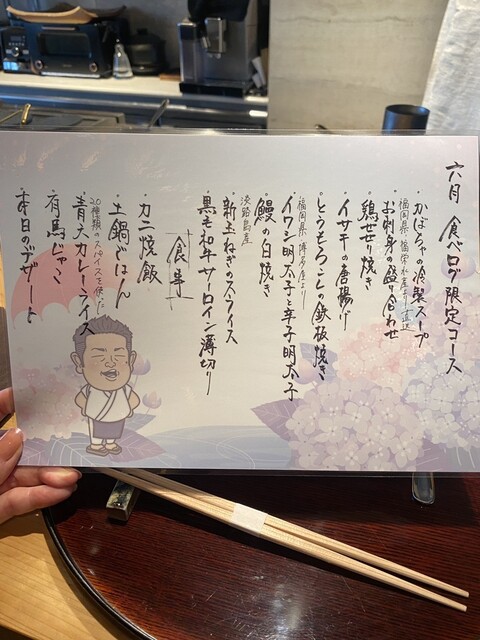 六月 食べログ限定コース
・かぼちゃの冷製スープ
福岡県 福栄水産より直送
・お刺身の盛り合わせ
・鶏せせり焼き
・イサキの唐揚げ
・とうもろこしの鉄板焼き
福岡県博多屋より
・イワシ明太子と辛子明太子
・鰻の白焼き
淡路島産
・新玉ねぎのスライス
・黒毛和牛サーロイン薄切り
食事
・カニ焼飯
・土鍋ごはん
20種類のスパイスを使った
・青大カレーライス
・有馬じゃこ
・本日のデザート